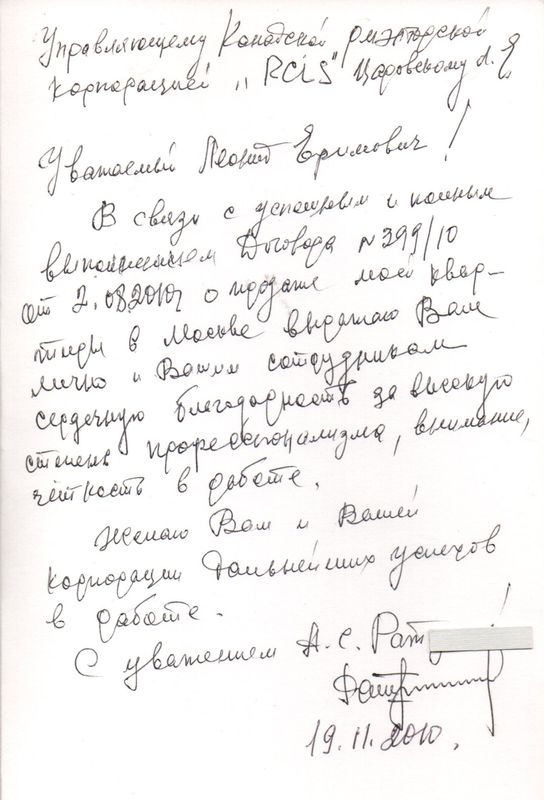 Управляющему Канадской риэлторской
корпорацией „RCIS" Царовскому Л. Е
Уважаемый Леонид Ефимович!
В связи с успешным и полным
выполнением Договора N 299/10
от 2.08.2010г о продаже моей квар-
тиры в Москве выражаю Вам
лично и Вашим сотрудникам
сердечную благодарность за высокую
степень профессионализма, внимание,
чёткость в работе.
Желаю Вам и Вашей
корпорации дальнейших успехов
в работе.
С уважением А. С. Рат
19.11.2010.